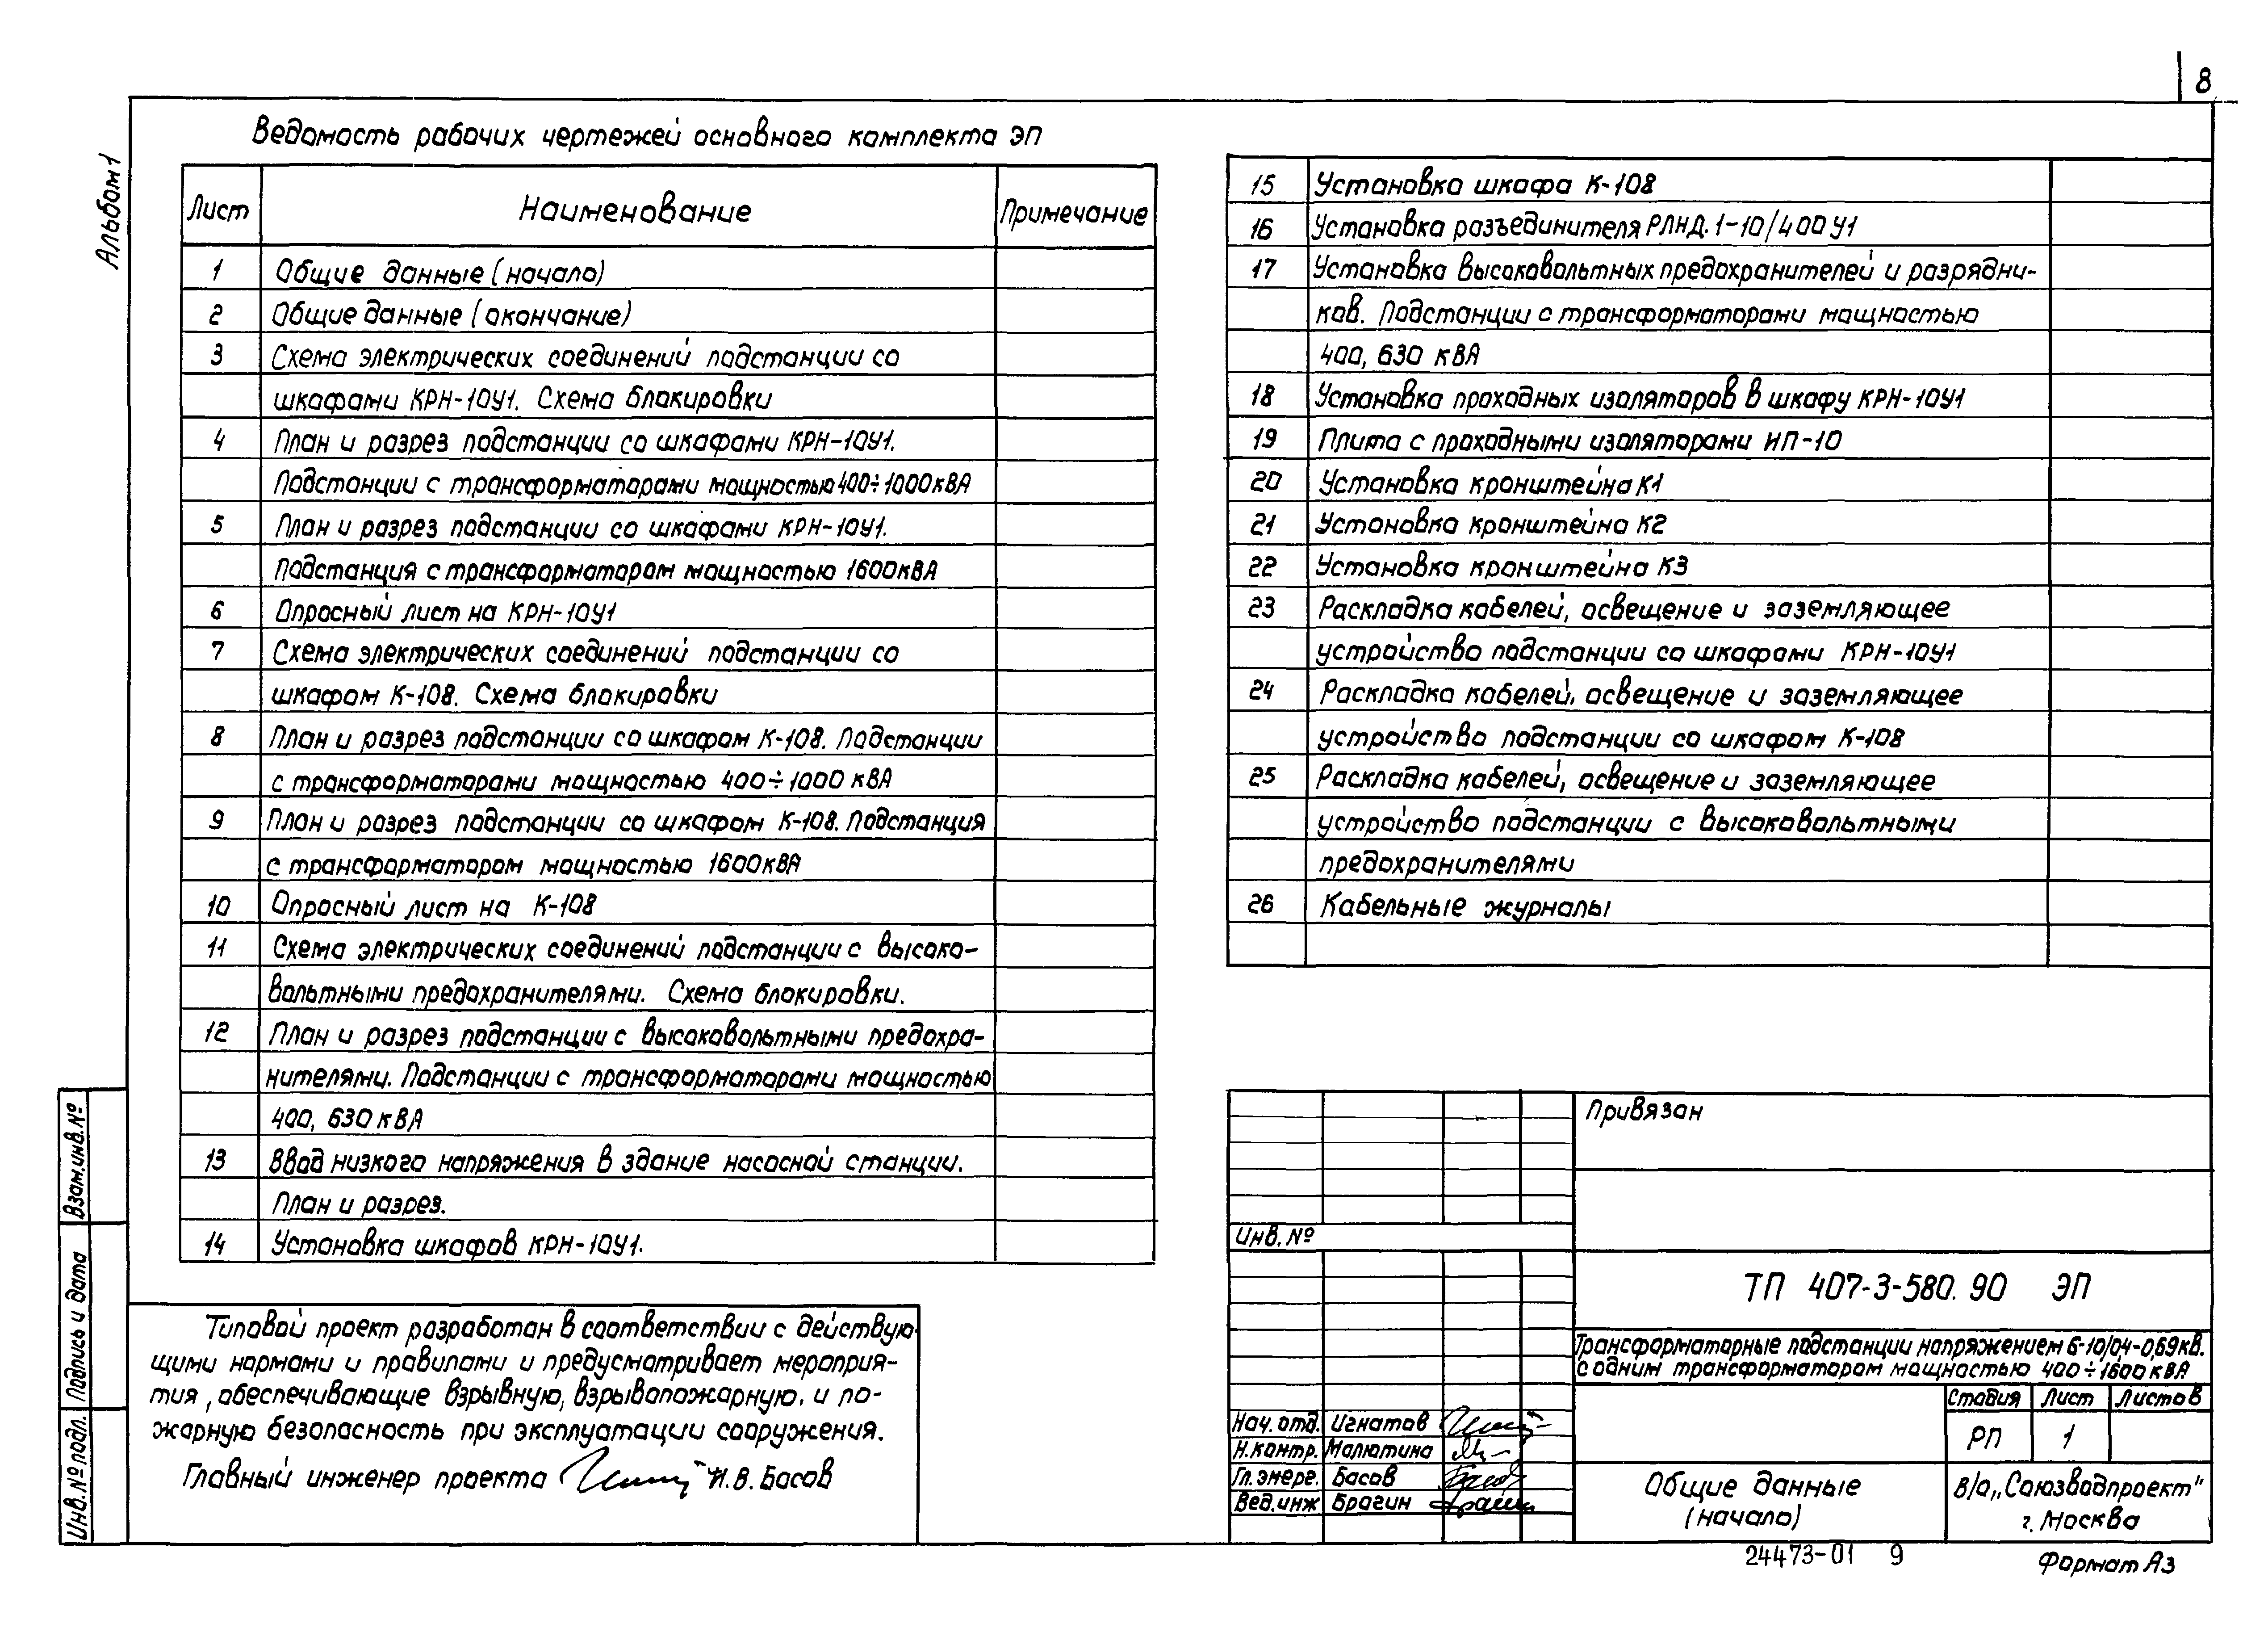 8
Альбом 1
Ведомость рабочих чертежей основного комплекта ЭП
Лист Наименование Примечание
1 Общие данные (начало)
2 Общие данные (окончание)
3 Схема электрических соединений подстанции со
шкафами КРН-10У1. Схема блокировки
4 План и разрез подстанции со шкафами КРН-10У1.
Подстанции с трансформаторами мощностью 400÷1000кВА
5 План и разрез подстанции со шкафами КРН-10У1.
Подстанция с трансформатором мощностью 1600кВА
6 Опросный лист на КРН-10У1
7 Схема электрических соединений подстанции со
шкафом К-108. Схема блокировки
8 План и разрез подстанции со шкафом К-108. Подстанции
с трансформаторами мощностью 400÷1000 кВА
9 План и разрез подстанции со шкафом К-108. Подстанция
с трансформатором мощностью 1600кВА
10 Опросный лист на К-108
11 Схема электрических соединений подстанции с высоко-
вольтными предохранителями. Схема блокировки.
12 План и разрез подстанции с высоковольтными предохра-
нителями. Подстанции с трансформаторами мощностью
400, 630 кВА
13 Ввод низкого напряжения в здание насосной станции.
План и разрез.
14 Установка шкафов КРН-10У1.
15 Установка шкафа К-108
16 Установка разъединителя РЛНД.1-10/400У1
17 Установка высоковольтных предохранителей и разрядни-
ков. Подстанции с трансформаторами мощностью
400, 630 кВА
18 Установка проходных изоляторов в шкафу КРН-10У1
19 Плита с проходными изоляторами ИП-10
20 Установка кронштейна К1
21 Установка кронштейна К2
22 Установка кронштейна К3
23 Раскладка кабелей, освещение и заземляющее
устройство подстанции со шкафами КРН-10У1
24 Раскладка кабелей, освещение и заземляющее
устройство подстанции со шкафом К-108
25 Раскладка кабелей, освещение и заземляющее
устройство подстанции с высоковольтными
предохранителями
26 Кабельные журналы
Типовой проект разработан в соответствии с действую-
щими нормами и правилами и предусматривает мероприя-
тия, обеспечивающие взрывную, взрывопожарную. и по-
жарную безопасность при эксплуатации сооружения.
Главный инженер проекта И.В. Басов
Взам.инв.№
Подпись и дата
Инв.№ подл.
Привязан
Инв.№
ТП 407-3-580.90 ЭП
Трансформаторные подстанции напряжением 6-10/0,4-0,69кВ.
с одним трансформатором мощностью 400÷1600 кВА
Стадия Лист Листов
РП 1
Нач. отд. Игнатов
Н.контр. Малютина
Гл.энерг. Басов
Вед.инж Брагин
Общие данные
(начало)
В/О „Союзводпроект"
г. Москва
24473-01 9
Формат А3